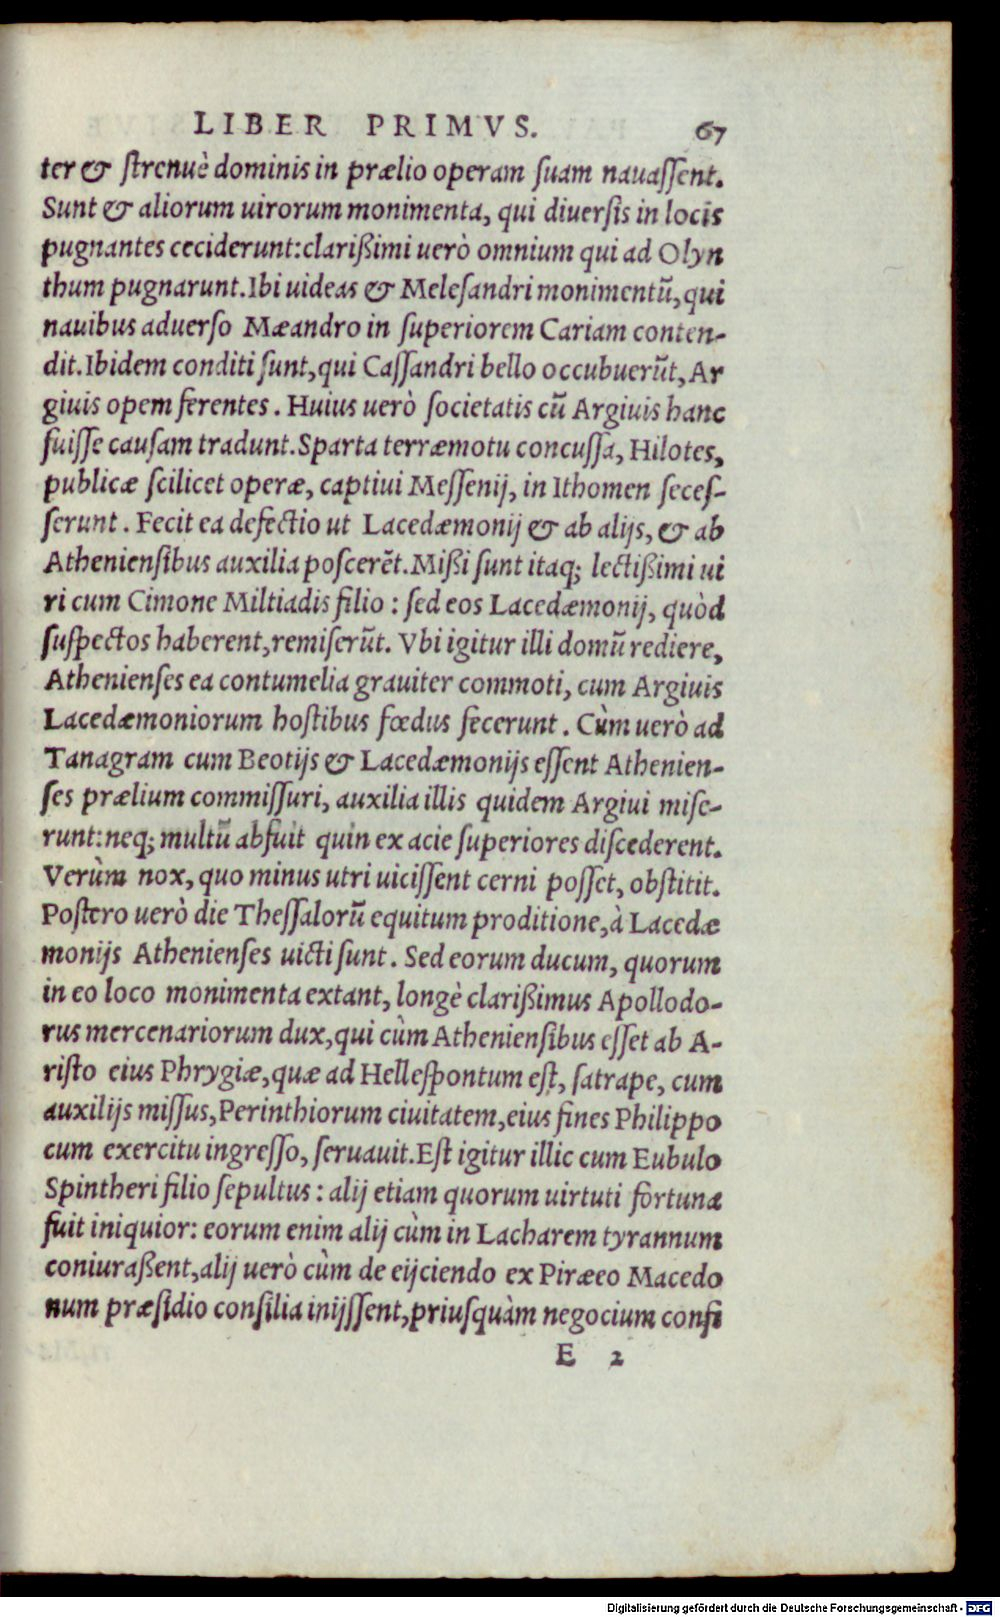 LIBER PRIMVS. 67
ter & ſtrenuè dominis in prælio operam ſuam nauaſſent.
Sunt & aliorum uirorum monimenta, qui diuerſis in locis
pugnantes ceciderunt: clarißimi uerò omnium qui ad Olyn
thum pugnarunt. Ibi uideas & Meleſandri monimentũ, qui
nauibus aduerſo Mæandro in ſuperiorem Cariam conten-
dit. Ibidem conditi ſunt, qui Caſſandri bello occubuerũt, Ar
giuis opem ferentes. Huius uerò ſocietatis cũ Argiuis hanc
fuiſſe cauſam tradunt. Sparta terræmotu concuſſa, Hilotes,
publicæ ſcilicet operæ, captiui Meſſenij, in Ithomen ſeceſ-
ſerunt. Fecit ea defectio ut Lacedæmonij & ab alijs, & ab
Athenienſibus auxilia poſcerẽt. Mißi ſunt itaq; lectißimi ui
ri cum Cimone Miltiadis filio: ſed eos Lacedæmonij, quòd
ſuſpectos haberent, remiſerũt. Vbi igitur illi domũ rediere,
Athenienſes ea contumelia grauiter commoti, cum Argiuis
Lacedæmoniorum hoſtibus fœdus fecerunt. Cùm uerò ad
Tanagram cum Beotijs & Lacedæmonijs eſſent Athenien-
ſes prælium commiſſuri, auxilia illis quidem Argiui miſe-
runt: neq; multũ abfuit quin ex acie ſuperiores diſcederent.
Verùm nox, quo minus utri uiciſſent cerni poſſet, obſtitit.
Poſtero uerò die Theſſalorũ equitum proditione, à Lacedæ
monijs Athenienſes uicti ſunt. Sed eorum ducum, quorum
in eo loco monimenta extant, longè clarißimus Apollodo-
rus mercenariorum dux, qui cùm Athenienſibus eſſet ab A-
riſto eius Phrygiæ, quæ ad Helleſpontum eſt, ſatrape, cum
auxilijs miſſus, Perinthiorum ciuitatem, eius fines Philippo
cum exercitu ingreſſo, ſeruauit. Eſt igitur illic cum Eubulo
Spintheri filio ſepultus: alij etiam quorum uirtuti fortuna
fuit iniquior: eorum enim alij cùm in Lacharem tyrannum
coniuraßent, alij uerò cùm de eijciendo ex Piræeo Macedo
num præſidio conſilia inijſſent, priuſquàm negocium confi
E 2
Digitalisierung gefördert durch die Deutsche Forschungsgemeinschaft - DFG